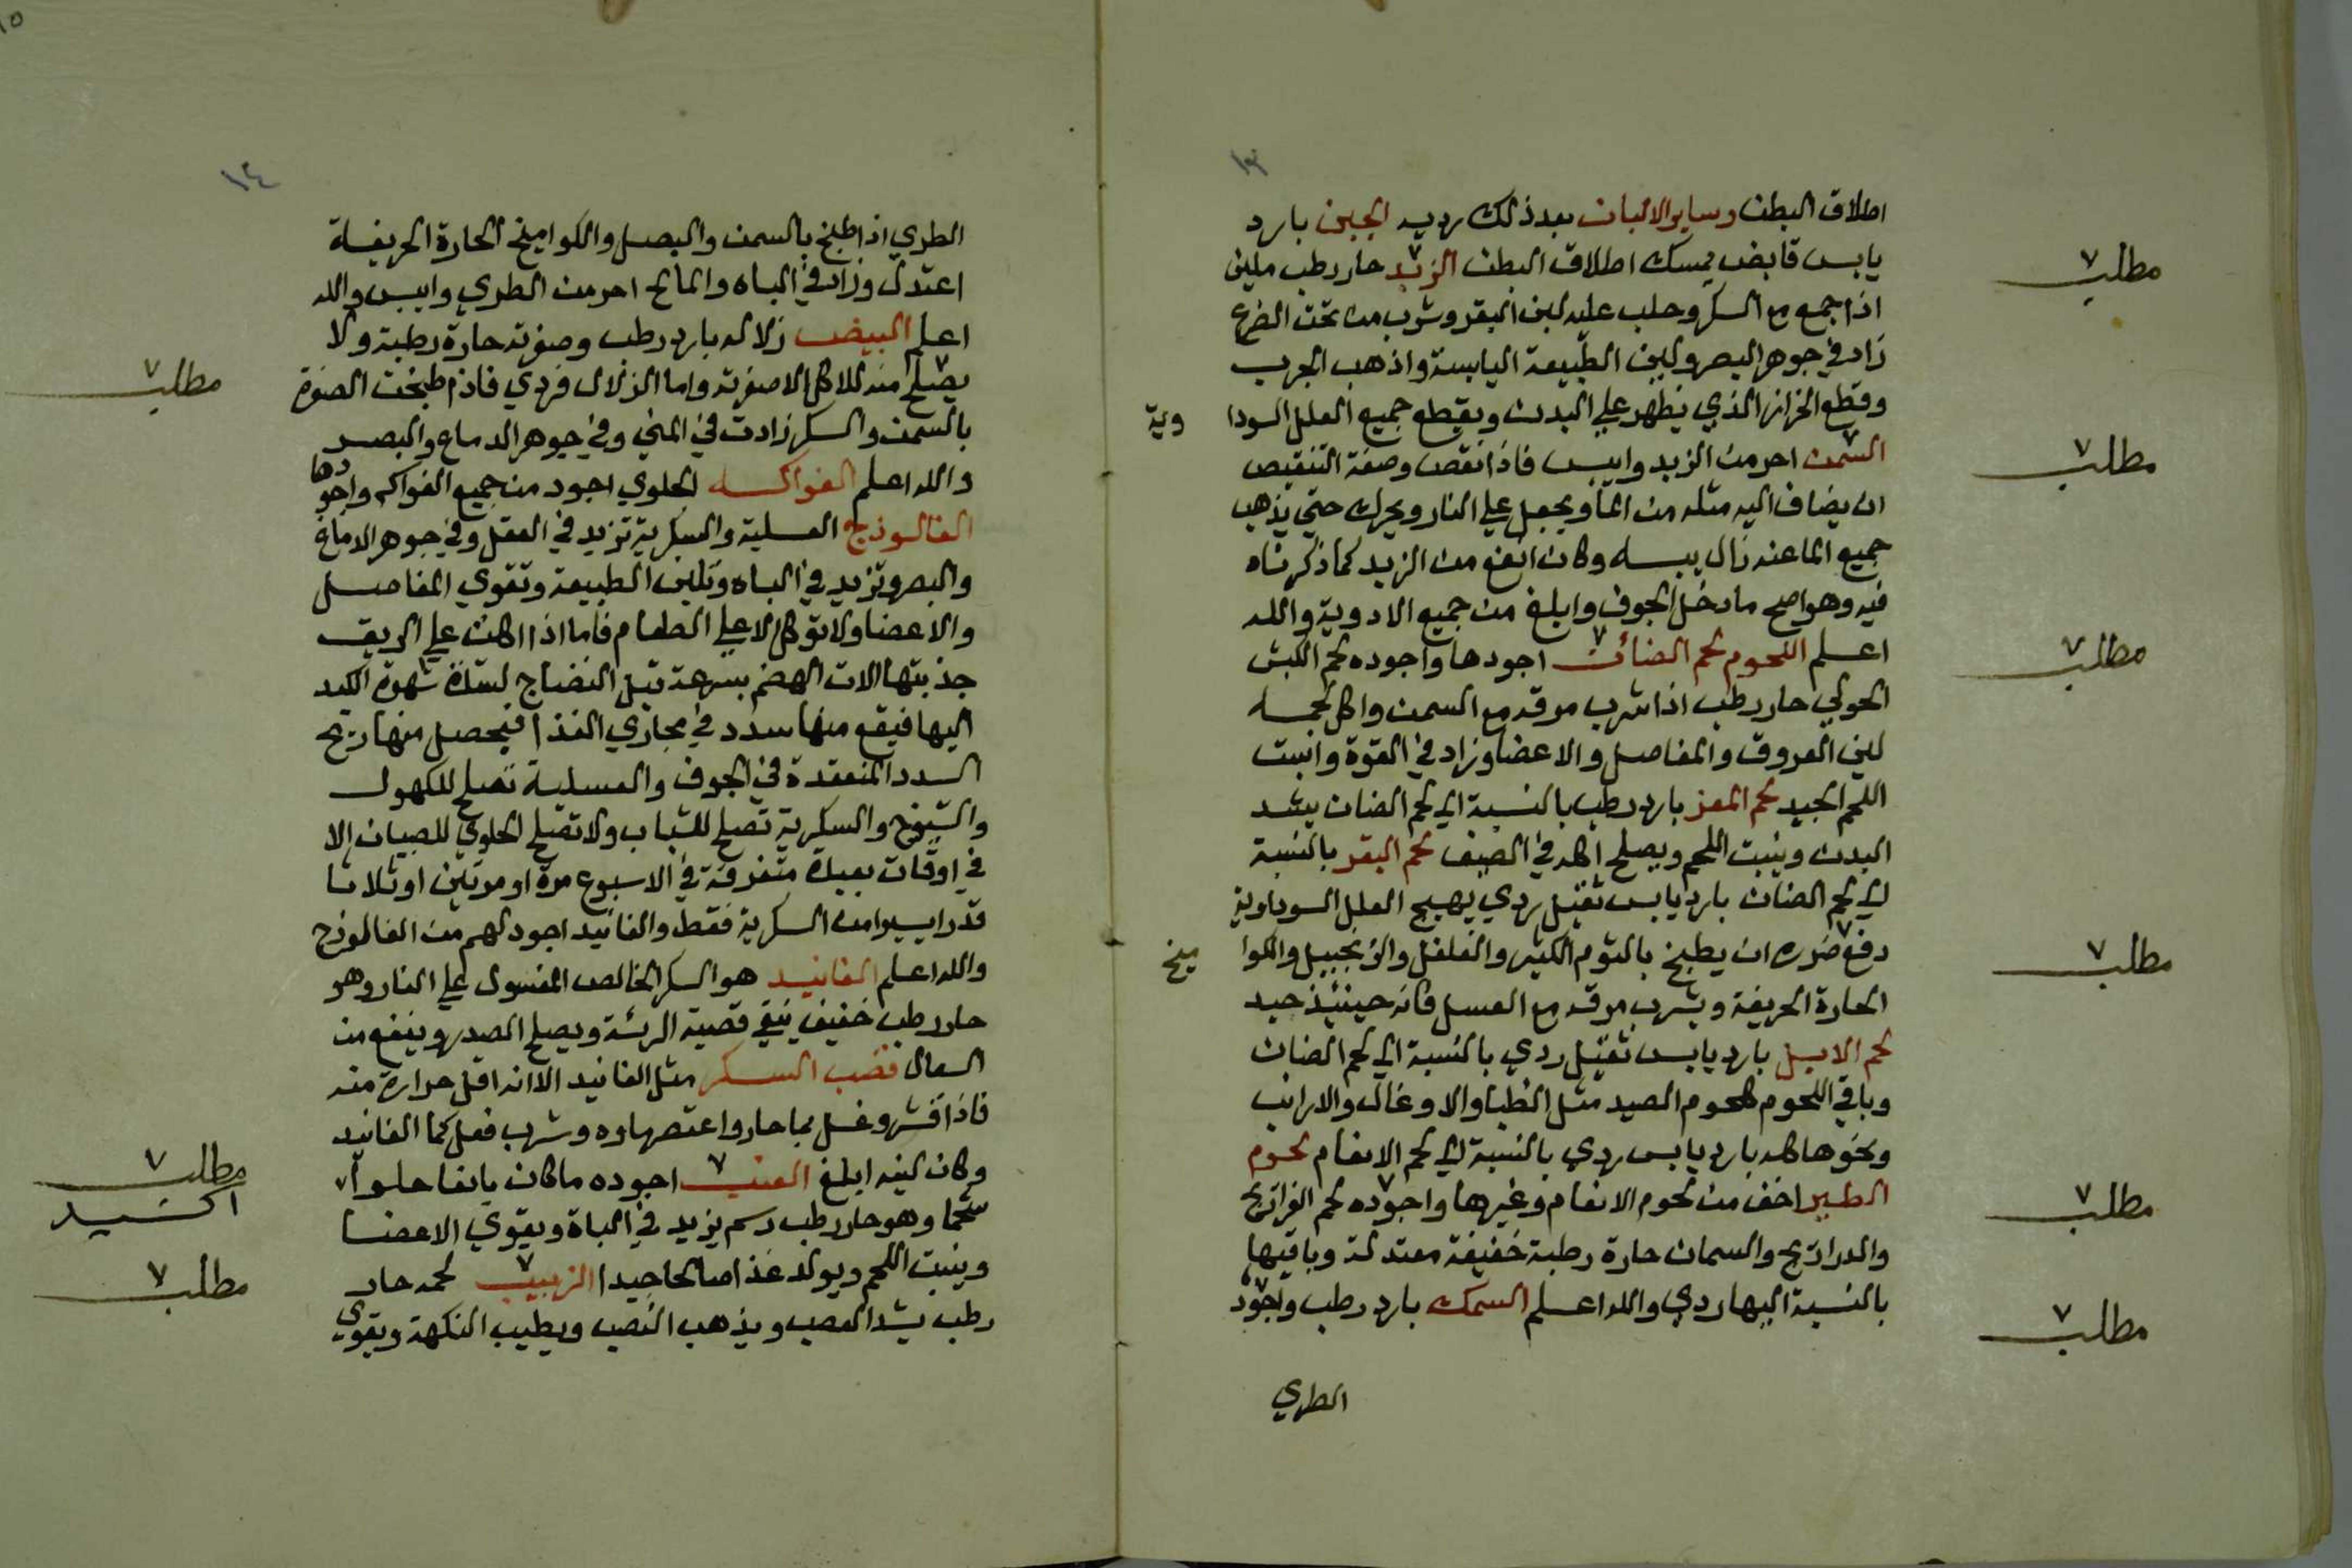 ١٣
اطلاق البطن وساير الالبان بعد ذلك رديه الجبن بارد
يابس قابض يمسك اطلاق البطن الزبد حار رطب ملين
مطلب
اذا جمع مع السكر وحلب عليه لبن البقر وشرب من تحت الضرع
زاد في جوهر البصر ولين الطبيعة اليابسة واذهب الجرب
وقطع الحزاز الذي يظهر علي البدن ويقطع جميع العلل السودا وية
السمن احر من الزبد وايبس فاذا نقص وصفة التنقيص
مطلب
ان يضاف اليه مثله من الما ويجعل علي النار ويحرك حتي يذهب
جميع الما عنه زال يبسه وكان انفع من الزبد كما ذكرناه
فيه وهو اصح ما دخل الجوف وابلغ من جميع الادوية والله
اعلم اللحوم لحم الضائن اجودها واجوده لحم الكبش
مطلب
الحولي حار رطب اذا شرب مرقه مع السمن واكل لحمه
لين العروق والمفاصل والاعضا وزاد في القوة وانبت
اللحم الجيد لحم المعز بارد رطب بالنسبة الي لحم الضان يشد
البدن وينبت اللحم ويصلح اكله في الصيف لحم البقر بالنسبة
الي لحم الضان بارد يابس ثقيل ردي يهيج العلل السوداوية
دفع ضرره ان يطبخ بالثوم الكثير والفلفل والزنجبيل والكوا ميخ
مطلب
الحارة الحريفة ويشرب مرقه مع العسل فانه حينئذ جيد
لحم الابل بارد يابس ثقيل ردي بالنسبة الي لحم الضان
وباقي اللحوم كلحوم الصيد مثل الظبا والاوعال والارانب
ونحوها كله بارد يابس ردي بالنسبة الي لحم الانعام لحوم
الطير اخف من لحوم الانعام وغيرها واجوده لحم الفراريج
مطلب
والدراريج والسمان حارة رطبة خفيفة معتدلة وباقيها
بالنسبة اليها ردي والله اعلم السمك بارد رطب واجود
مطلب
الطري
١٤
الطري اذا طبخ بالسمن والبصل والكواميخ الحارة الحريفة
اعتدل وزاد في الباه والمالح احر من الطري وايبس والله
اعلم البيض زلاله بارد رطب وصفرته حارة رطبة ولا
يصلح منه للاكل الا صفرته واما الزلال فردي فاذا طبخت الصفرة
مطلب
بالسمن والسكر زادت في المني وفي جوهر الدماغ والبصر
والله اعلم الفواكه الحلوي اجود من جميع الفواكه واجودها
الفالوذج العسلية والسكرية تزيد في العقل وفي جوهر الدماغ
والبصر وتزيد في الباه وتلين الطبيعة وتقوي المفاصل
والاعضا ولا توكل الا علي الطعام فاما اذا اكلت علي الريق
جذبتها الات الهضم بسرعة قبل النضاج لشدة شهوة الكبد
اليها فيقع منها سدد في مجاري الغذا فيحصل منها ريح
السدد المنعقدة في الجوف والعسلية تصلح للكهول
والشيوخ والسكرية تصلح للشباب ولا تصلح الحلوي للصبيان الا
في اوقات بعيدة متفرقة في الاسبوع مرة او مرتين او ثلاثا
قدرا يسيرا من السكرية فقط والفانيد اجود لهم من الفالوذج
والله اعلم الفانيد هو السكر الخالص المغسول علي النار وهو
حار رطب خفيف ينقي قصبة الرئة ويصلح الصدر وينفع من
السعال قصب السكر مثل الفانيد الا انه اقل حرارة منه
فاذا قشر وغسل بما حار واعتصر ماوه وشرب فعل كما الفانيد
وكان لينه ابلغ العنب اجوده ما كان يانعا حلوا
مطلب
اكسيد
شحما وهو حار رطب دسم يزيد في الباة ويقوي الاعضا
وينبت اللحم ويولد غذا صالحا جيدا الزبيب لحمه حار
مطلب
رطب يشد العصب ويذهب النصب ويطيب النكهة ويقوي